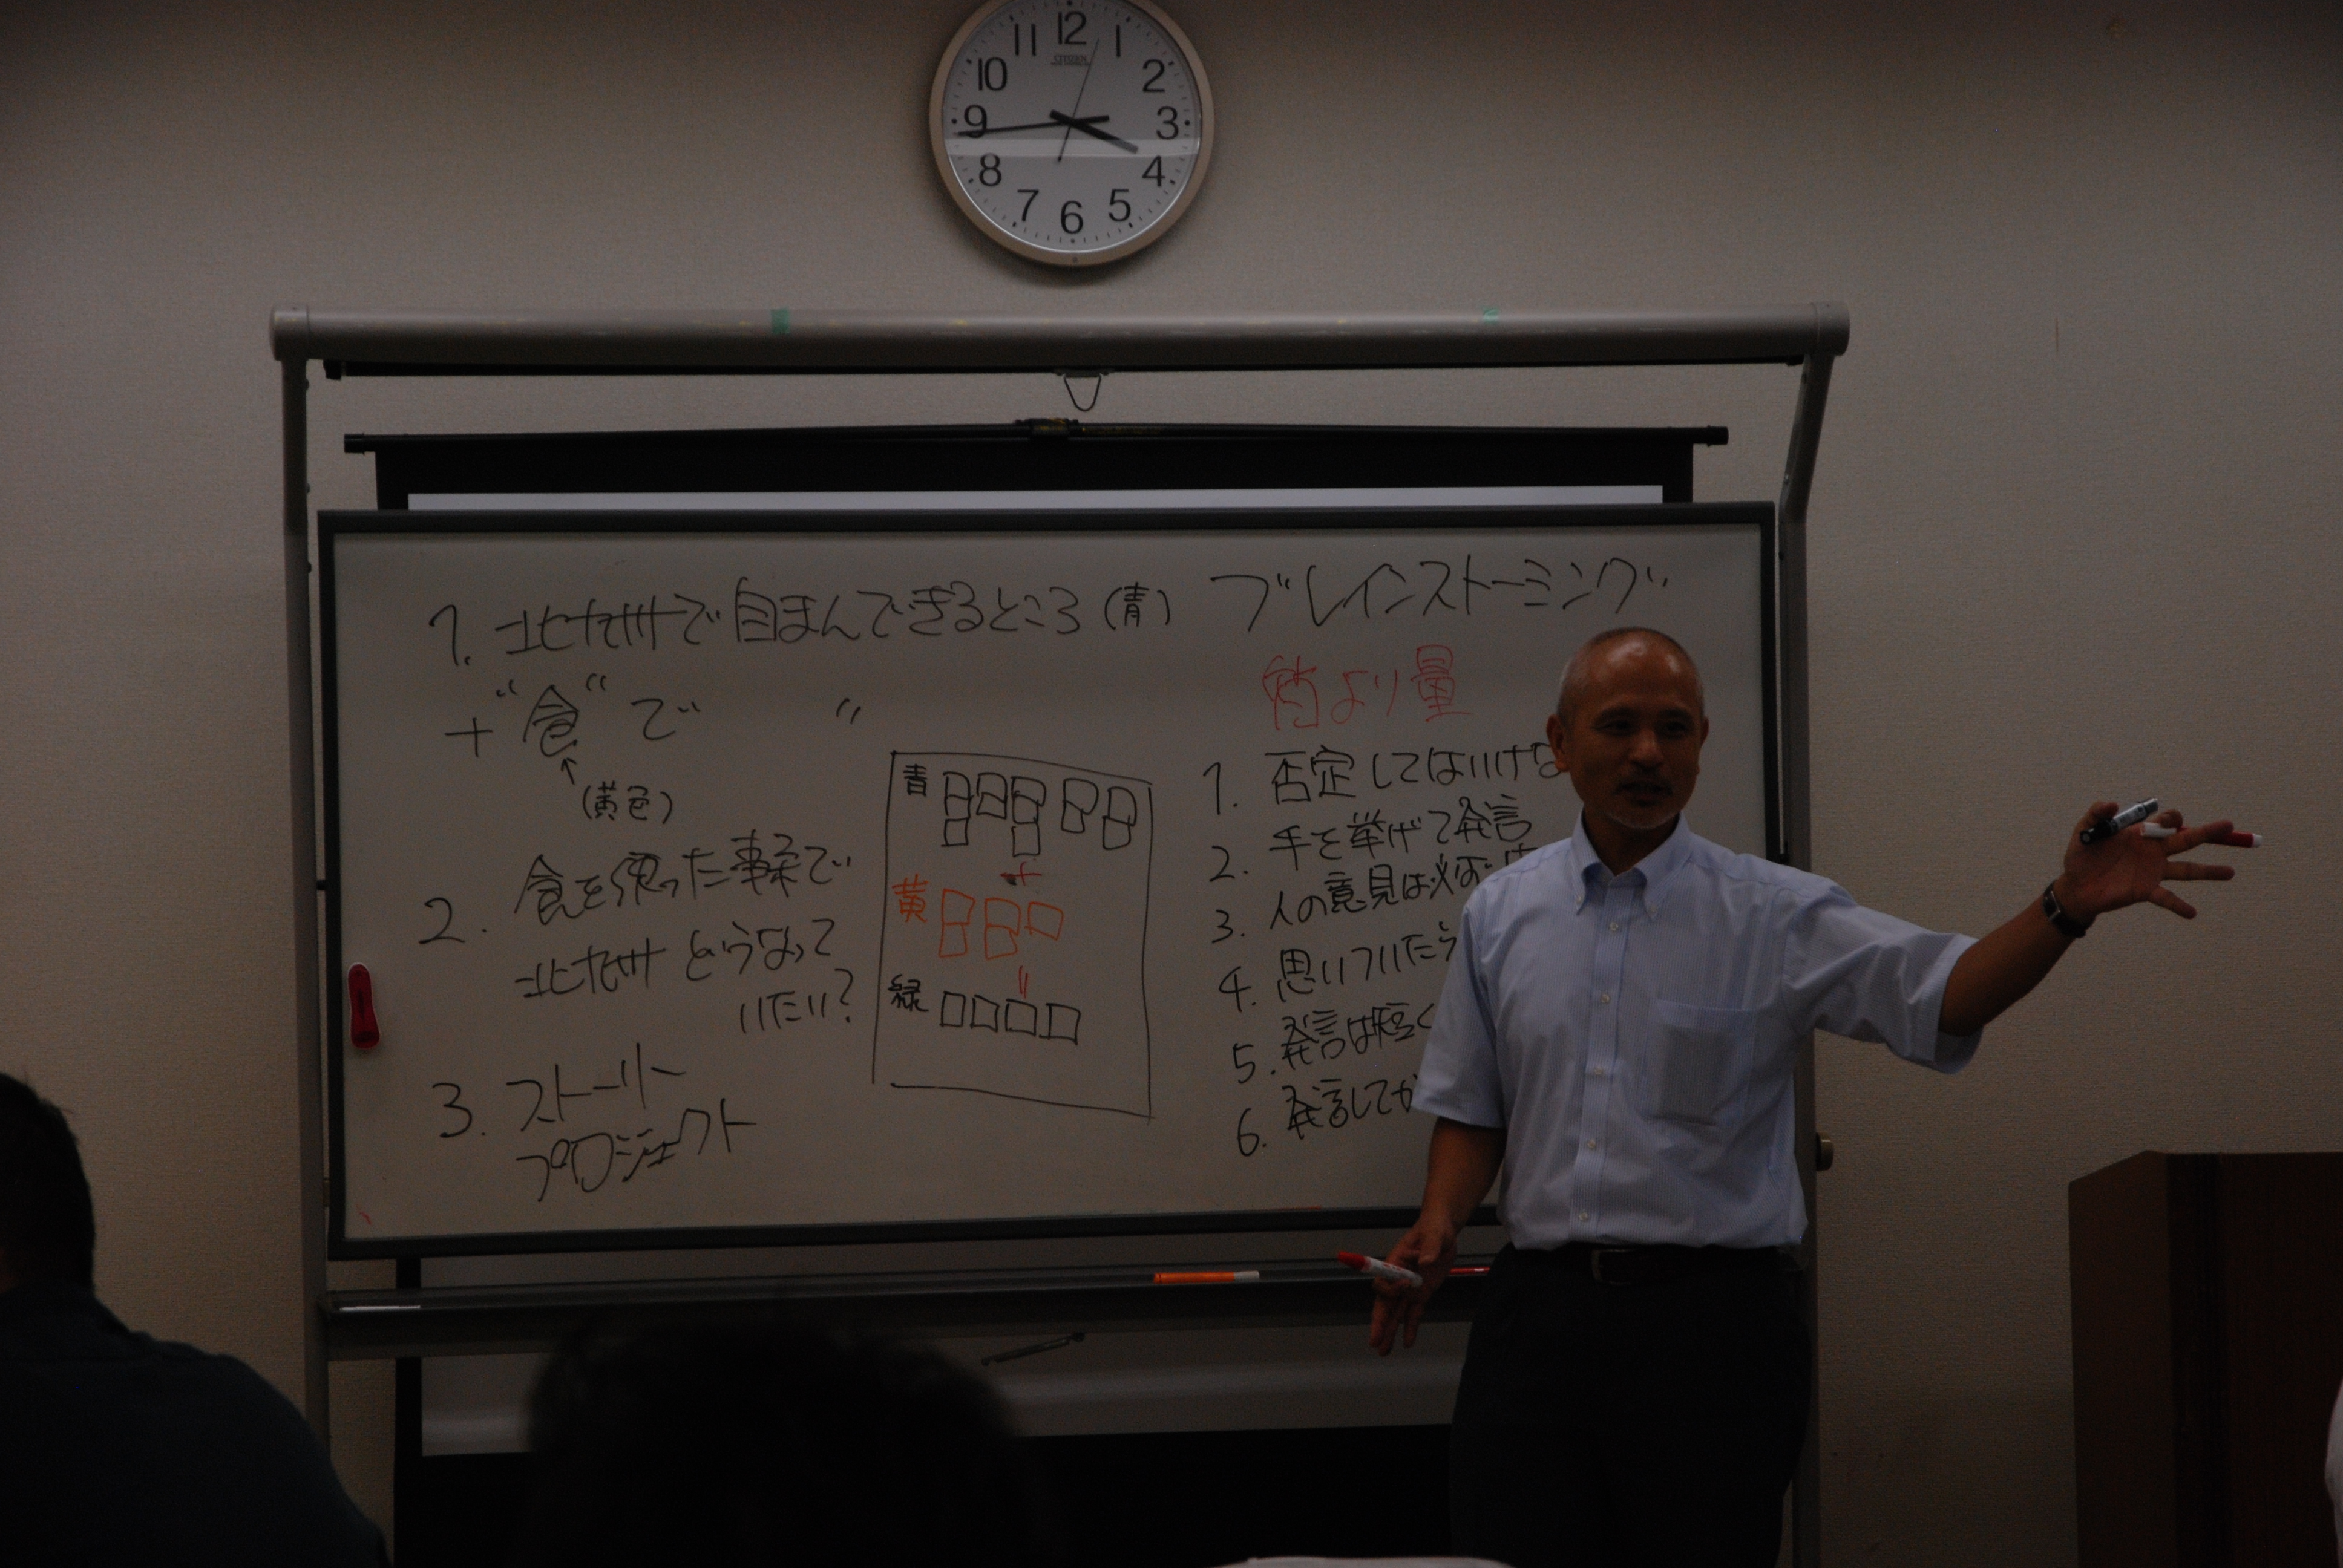 12
11
1
10
2
9
3
8
4
7
5
6
CITIZEN
1. 北九州で自まんできるところ(青)
+ "食"で 〃
↑
(黄色)
2. 食を使った事業で
北九州どうなって
いたい?
3. ストーリー
プロジェクト
青
+
黄
〃
緑
ブレインストーミング
質より量
1. 否定してはいけな
2. 手を挙げて発言
3. 人の意見は必ず
4. 思いついたら
5. 発言は短く
6. 発言してか